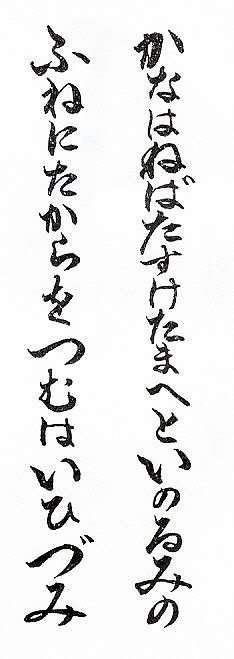 かなはねばたすけたまへといのるみの
ふねにたからをつむはいひづみ